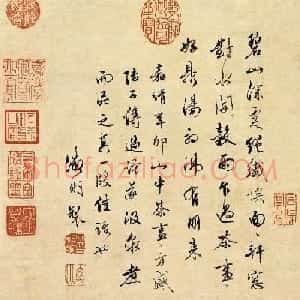 碧山深處絕纖埃面面軒窗
對水開穀雨乍過茶事
好鼎湯初沸有朋來
嘉靖辛卯山中茶事方盛
陸子傅過訪遂汲泉煮
而品之真一段佳話也
徵明製
Shufaziliao.com